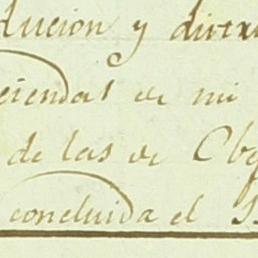 lucion y dicta
ciendas de mi
de las de Obe
concluida el